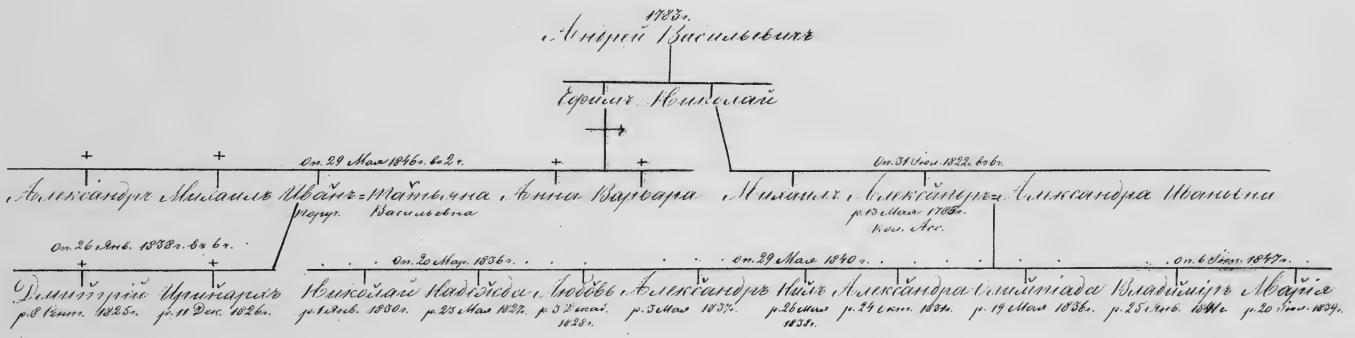 1783г.
Андрей Васильевичъ
Ефимъ Николай
Оп. 29 Мая 1846г. во 2 г.
Оп. 31 Іюл. 1822. въ 6г.
Александръ Михаилъ Иванъ = Татьяна Анна Варвара Михаилъ Александръ = Александра Ивановна
Васильевна
р. 13 Мая 1785г.
Кол. Асс.
Оп. 26 Янв. 1838г. въ 6г.
Оп. 20 Мар. 1836г.
Оп. 29 Мая 1840г.
Оп. 6 1847г.
Дмитрій Иринархъ Николай Надежда Любовь Александръ Нилъ Александра Олимпіада Владиміръ Марія
р. 8 Сент. 1825г. р. 11 Дек. 1826г. р. 1 Янв. 1830г. р. 23 Мая 1827. р. 3 р. 3 Мая 1837г. р. 26 Мая р. 24 окт. р. 19 Мая 1836г. р. 25 Янв. р. 20 Іюл. 1839г.
1828г. 1838г.